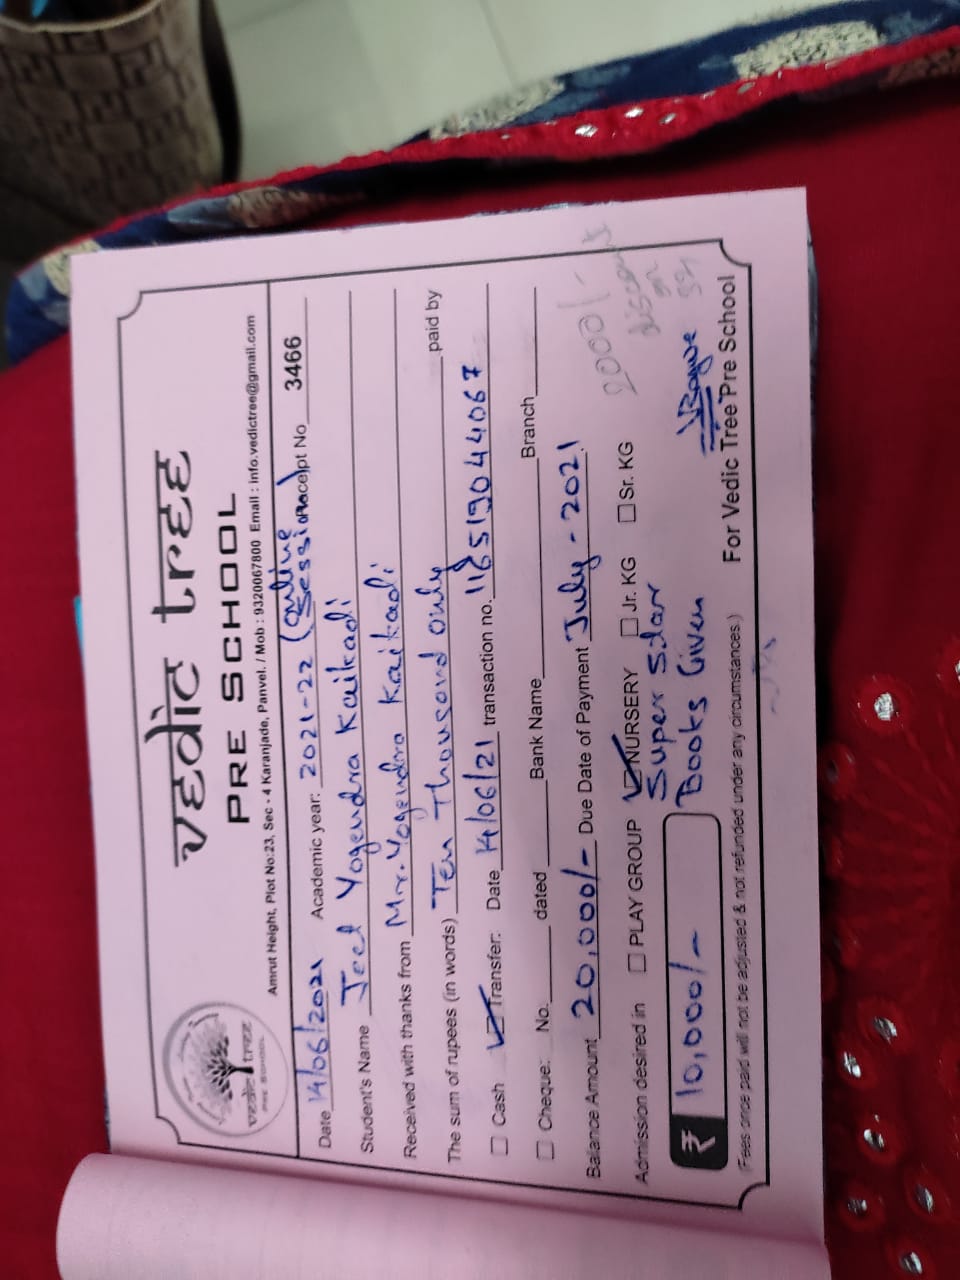 vedic tree
PRE SCHOOL
Amrut Height, Plot No:23, Sec - 4 Karanjade, Panvel. / Mob : 9320067800 Email : info.vedictree@gmail.com
vedic tree
PRE SCHOOL
Date 14/06/2021 Academic year: 2021-22 (online session) Receipt No 3466
Student's Name Jeet Yogendra Kaikadi
Received with thanks from Mr. Yogendra Kaikadi
The sum of rupees (in words) Ten Thousand only paid by
Cash Transfer: Date 14/06/21 transaction no. 116519044067
Cheque: No. dated Bank Name Branch
Balance Amount 20,000/- Due Date of Payment July - 2021
2000/- discount on
Admission desired in PLAY GROUP NURSERY Jr. KG Sr. KG
Super Star
₹ 10,000/- Books Given
(Fees once paid will not be adjusted & not refunded under any circumstances.) For Vedic Tree Pre School